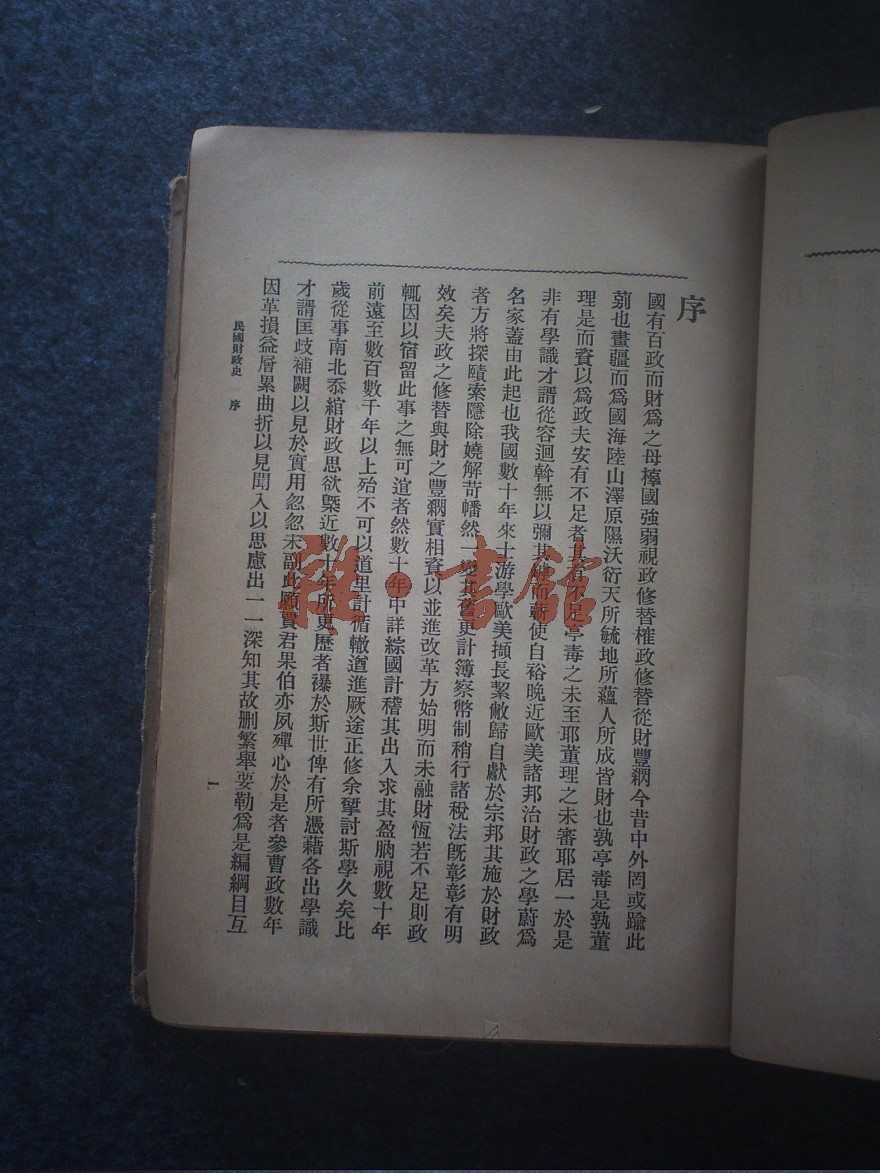 序
國有百政而財爲之母樳國強弱視政修替榷政修替從財豐綱今昔中外罔或踰此
莂也畫疆而爲國海陸山澤原隰沃衍天所毓地所蘊人所成皆財也孰亭毒是孰董
理是而資以爲政夫安有不足者有不足亭毒之未至耶董理之未審耶居一於是
非有學識才諝從容迴斡無以彌其而蘄使自裕晚近歐美諸邦治財政之學蔚爲
名家蓋由此起也我國數十年來士游學歐美擷長絜敝歸自獻於宗邦其施於財政
者方將探賾索隱除嬈解苛幡然一變其舊更計簿察幣制稍行諸稅法旣彰彰有明
效矣夫政之修替與財之豐綱實相資以並進改革方始明而未融財恆若不足則政
輒因以宿留此事之無可逭者然數十年中詳綜國計稽其出入求其盈朒視數十年
前遠至數百數千年以上殆不可以道里計循轍遒進厥途正修余揅討斯學久矣比
歲從事南北忝綰財政思欲櫽近數十年所更歷者襮於斯世俾有所憑藉各出學識
才諝匡歧補闕以見於實用忽忽未副此願賈君果伯亦夙殫心於是者參曹政數年
因革損益層累曲折以見聞入以思慮出一一深知其故删繁舉要勒爲是編綱目互
民國財政史 序
一
雅·書館